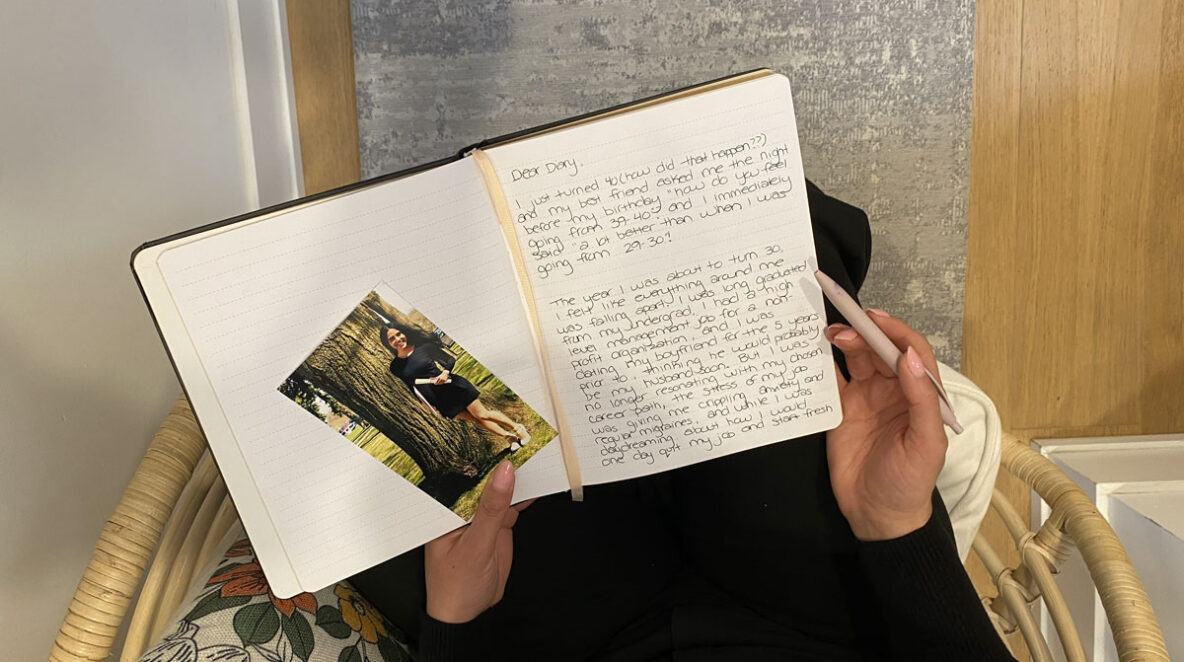 Dear Diary,
I just turned 40 (how did that happen??)
and my best friend asked me the night
before my birthday "how do you feel
going from 39-40?" and I immediately
said "a lot better than when I was
going from 29-30"!
The year I was about to turn 30,
I felt like everything around me
was falling apart. I was long graduated
from my undergrad. I had a high
level management job for a non-
profit organization, and I was
dating my boyfriend for the 5 years
prior to, thinking he would probably
be my husband soon. But I was
no longer resonating with my chosen
career path, the stress of my job
was giving me crippling anxiety and
regular migraines, and while I was
daydreaming about how I would
one day quit my job and start fresh